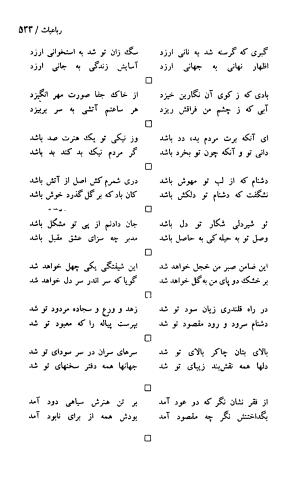 رباعیات / ۵۳۳
گبری که گرسنه شد به نانی ارزد سگ زان تو شد به استخوانی ارزد
اظهار نهانی به جهانی ارزد آسایش زندگی به جانی ارزد
بادی که ز کوی آن نگارین خیزد از خاک جفا صورت مهر انگیزد
آبی که ز چشم من فراقش ریزد هر ساعتم آتشی به سر بریزد
ای آنکه برت مردم بد، دد باشد وز نیکی تو یک هنرت صد باشد
دانی تو و آنکه چون تو بخرد باشد گر مردم نیک بد کند بد باشد
دشنام که از لب تو مهوش باشد دری شمرم کش اصل از آتش باشد
نشگفت که دشنام تو دلکش باشد کان باد که بر گل گذرد خوش باشد
تو شیردلی شکار تو دل باشد جان دادنم از پی تو مشکل باشد
وصل تو به حیله کی به حاصل باشد مدبر چه سزای عشق مقبل باشد
این ضامن صبر من خجل خواهد شد این شیفتگی یکی چهل خواهد شد
بر خشک دو پای من به گل خواهد شد گویا که سر اندر سر دل خواهد شد
در راه قلندری زیان سود تو شد زهد و ورع و سجاده مردود تو شد
دشنام سرود و رود مقصود تو شد بپرست پیاله را که معبود تو شد
بالای بتان چاکر بالای تو شد سرهای سران در سر سودای تو شد
دلها همه نقش‌بند زیبای تو شد جهانها همه دفتر سخنهای تو شد
از فقر نشان نگر که در عود آمد بر تن هنرش سیاهی دود آمد
بگداختنش نگر چه مقصود آمد بودش همه از برای نابود آمد